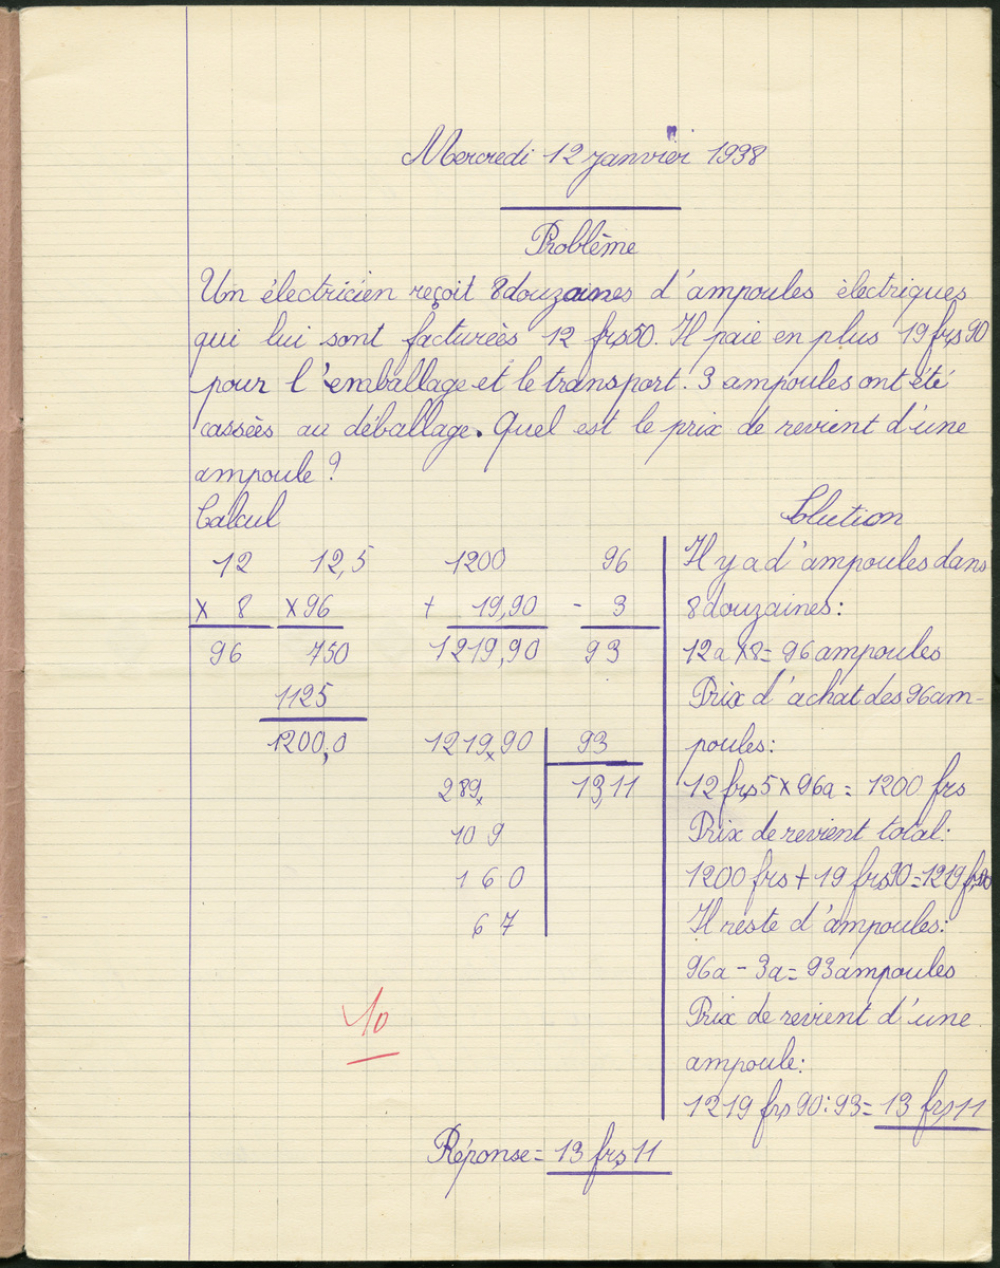 Mercredi 12 janvier 1938
Problème
Un électricien reçoit 8 douzaines d'ampoules électriques
qui lui sont facturées 12 frs50. Il paie en plus 19 frs 90
pour l'emballage et le transport. 3 ampoules ont été
cassées au déballage. Quel est le prix de revient d'une
ampoule ?
Calcul
12 12,5 1200 96
x 8 x 96 + 19,90 - 3
96 750 1219,90 93
1125
1200,0 1219,90 93
289, 13,11
10 9
1 6 0
6 7
10
Solution
Il y a d'ampoules dans
8 douzaines :
12a x 8 = 96 ampoules
Prix d'achat des 96 am-
poules :
12 frs 5 x 96a = 1200 frs
Prix de revient total :
1200 frs + 19 frs 90 = 1219 frs 90
Il reste d'ampoules :
96a - 3a = 93 ampoules
Prix de revient d'une
ampoule :
1219 frs 90 : 93 = 13 frs 11
Réponse = 13 frs 11